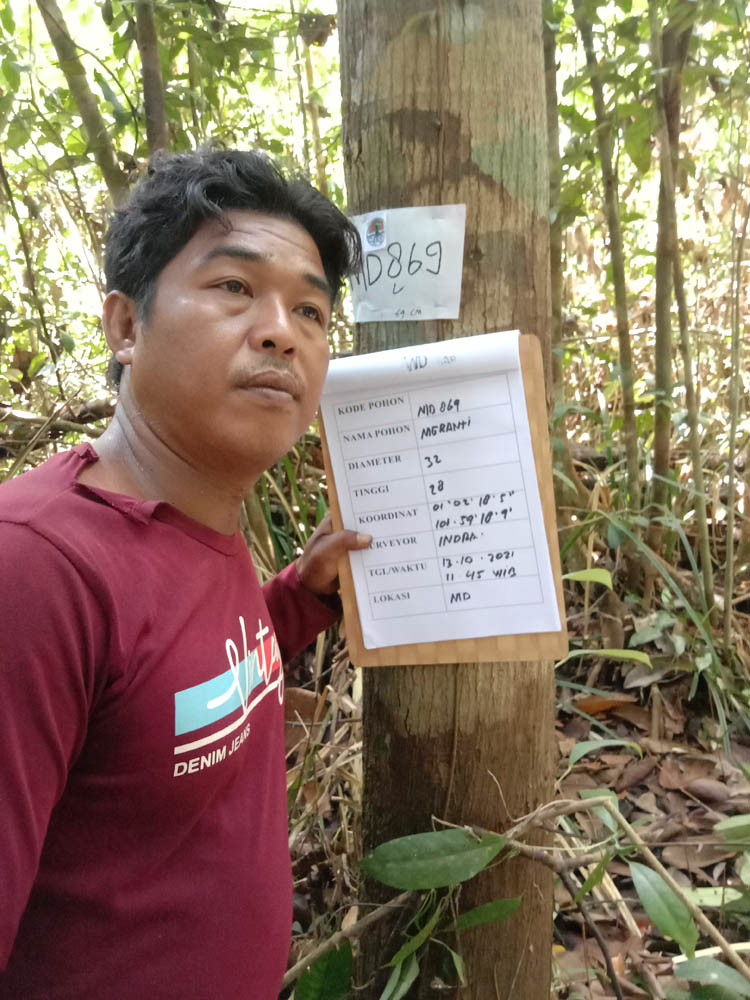 MD869
69 CM
WD
KODE POHON MD 869
NAMA POHON MERANTI
DIAMETER 32
TINGGI 28
KOORDINAT 01°02'18.5"
101.59'18.9'
SURVEYOR INDRA.
TGL/WAKTU 13.10.2021
11 45 WIB
LOKASI MD
Vintage
DENIM JEANS